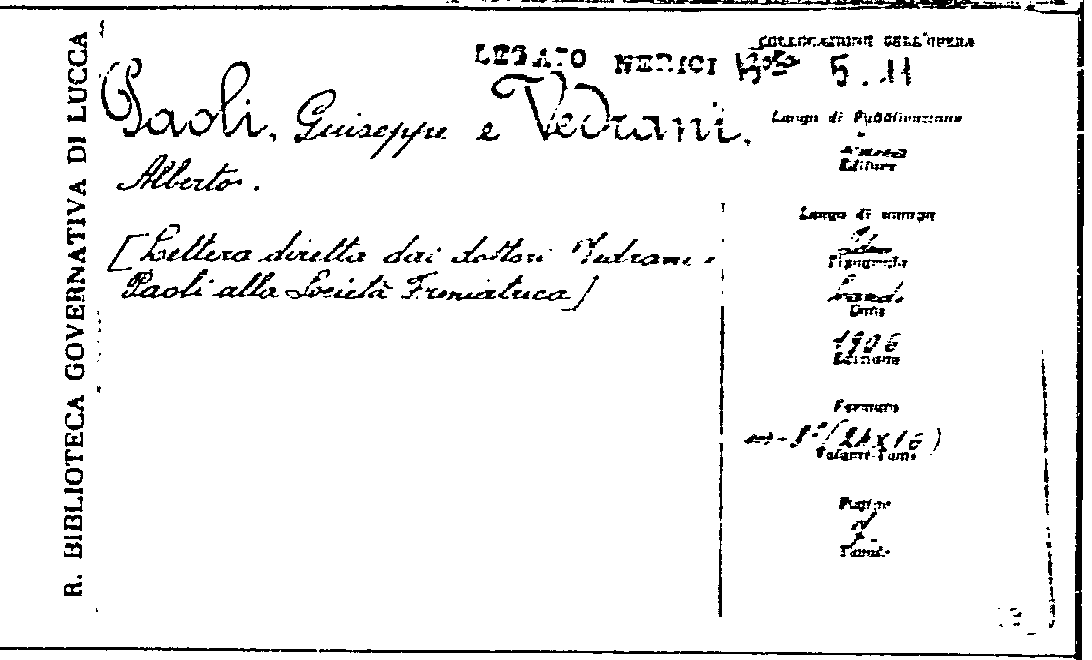 R. BIBLIOTECA GOVERNATIVA DI LUCCA
LEGATO NERICI
COLLOCAZIONE DELL'OPERA
5.11
Paoli, Guiseppe e Vedrani,
Alberto.
[Lettera diretta dai dottori Vedrani e
Paoli alla Società Freniatrica]
Luogo di Pubblicazione
Editore
Luogo di stampa
Tipografia
Data
1906
Edizione
Formato
in-8° (24x16)
Volumi-Tomi
Pagine
Tavole